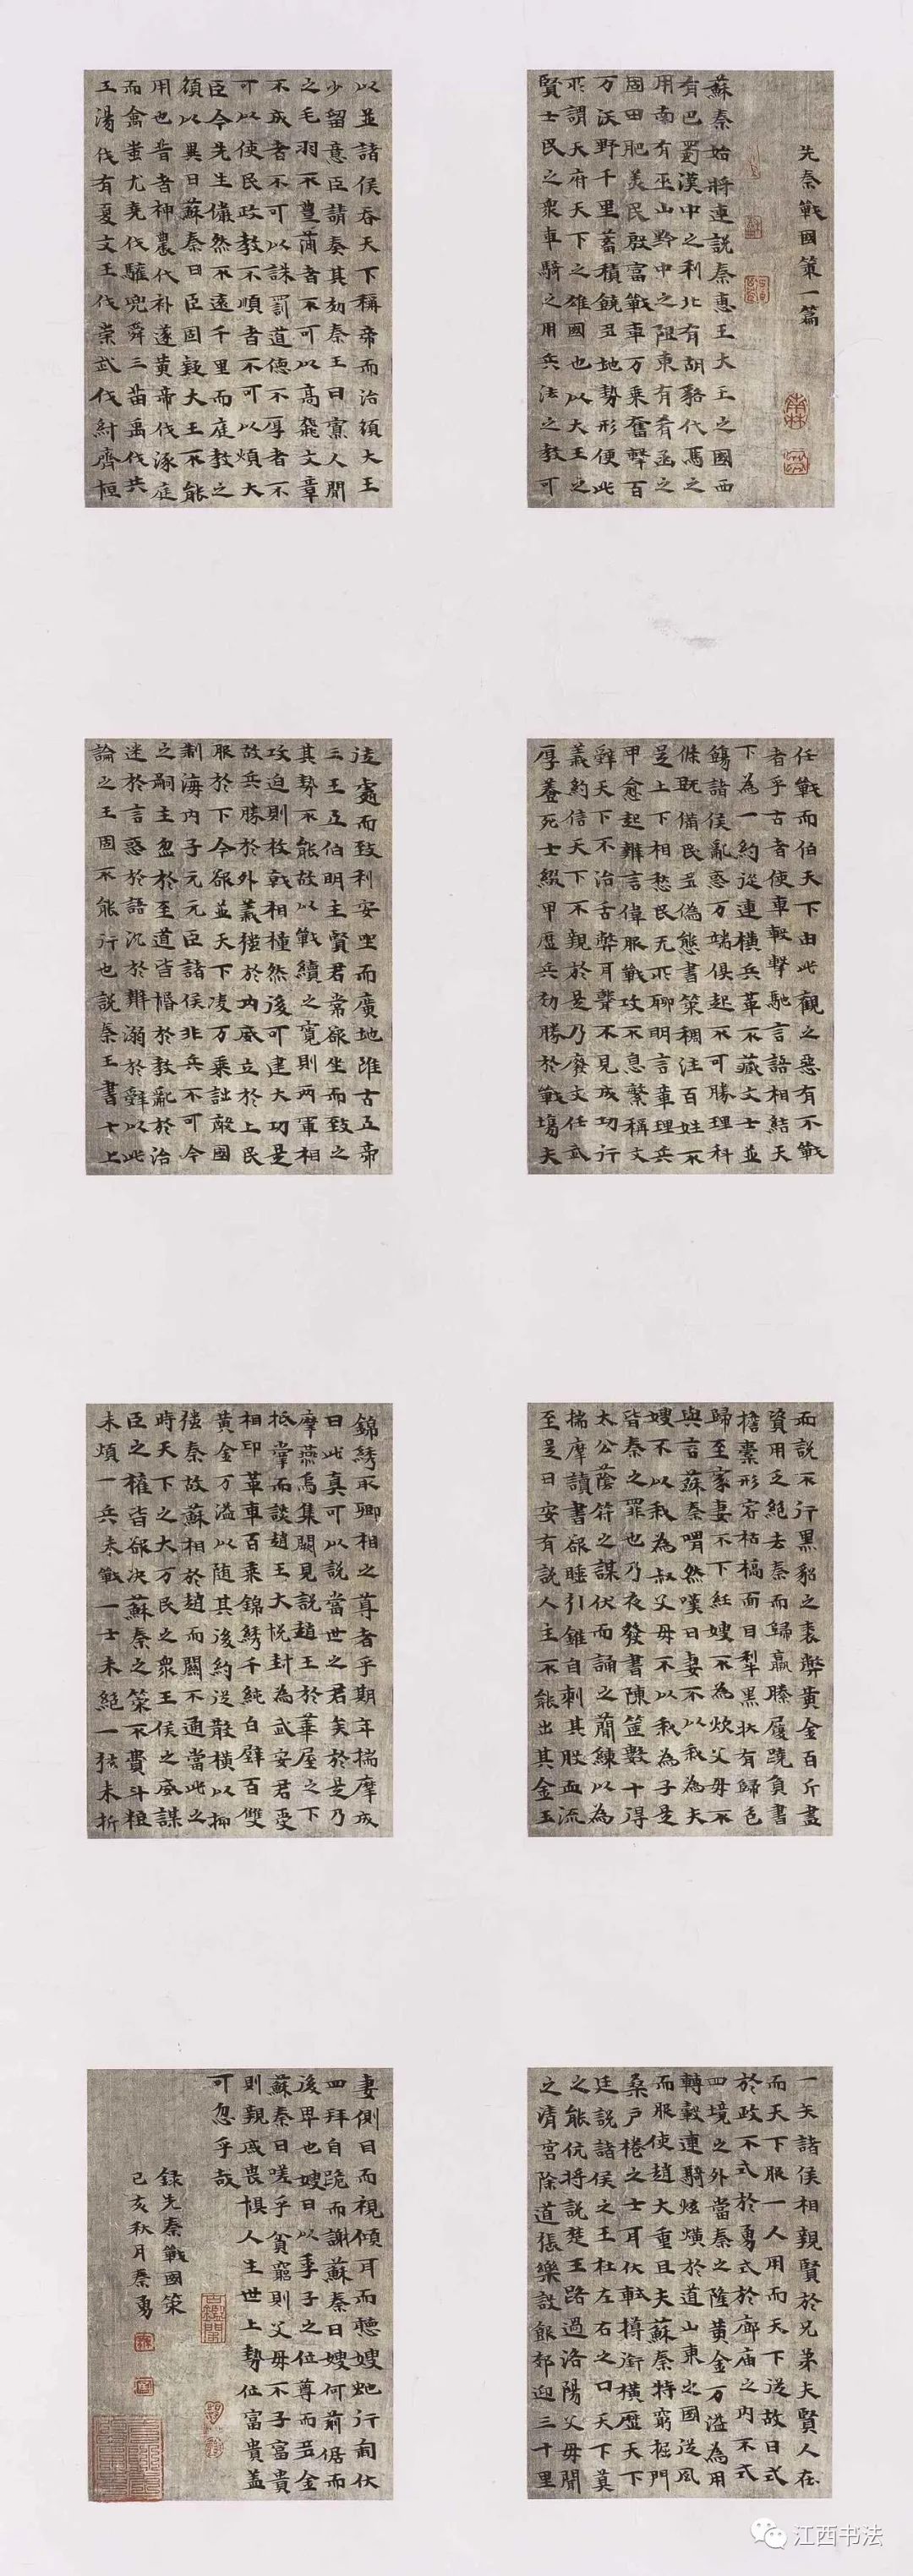 先秦戰國策一篇
蘇秦始將連說秦惠王大王之國西
有巴蜀漢中之利北有胡貉代馬之
用南有巫山黔中之限東有肴函之
固田肥美民殷富戰車万乘奮擊百
万沃野千里蓄積饒多地勢形便此
所謂天府天下之雄國也以大王之
賢士民之衆車騎之用兵法之教可
以並諸侯吞天下稱帝而治願大王
少留意臣請奏其効秦王曰寡人聞
之毛羽不豐滿者不可以高飛文章
不成者不可以誅罰道德不厚者不
可以使民政教不順者不可以煩大
臣今先生儼然不遠千里而庭教之
願以異日蘇秦曰臣固疑大王不能
用也昔者神農伐補遂黃帝伐涿鹿
而禽蚩尤堯伐驩兜舜三苗禹伐共
工湯伐有夏文王伐崇武伐紂齊桓
任戰而伯天下由此觀之惡有不戰
者乎古者使車轂擊馳言語相結天
下為一約從連橫兵革不藏文士並
飾諸侯亂惑万端俱起不可勝理科
條既備民多偽態書策稠濁百姓不
足上下相愁民无所聊明言章理兵
甲愈起辯言偉服戰攻不息繁稱文
辭天下不治舌弊耳聾不見成功行
義約信天下不親於是乃廢文任武
厚養死士綴甲厲兵効勝於戰場夫
徒處而致利安坐而廣地雖古五帝
三王五伯明主賢君常欲坐而致之
其勢不能故以戰續之寬則兩軍相
攻迫則杖戟相橦然後可建大功是
故兵勝於外義强於內威立於上民
服於下今欲並天下凌万乘詘敵國
制海內子元元臣諸侯非兵不可今
之嗣主忽於至道皆惛於教亂於治
迷於言惑於語沉於辯溺於辭以此
論之王固不能行也說秦王書十上
而說不行黑貂之裘弊黃金百斤盡
資用乏絕去秦而歸羸縢履蹻負書
擔橐形容枯槁面目犁黑狀有歸色
歸至家妻不下紝嫂不為炊父母不
與言蘇秦喟然嘆曰妻不以我為夫
嫂不以我為叔父母不以我為子是
皆秦之罪也乃夜發書陳篋數十得
太公陰符之謀伏而誦之簡練以為
揣摩讀書欲睡引錐自刺其股血流
至足曰安有說人主不能出其金玉
錦綉取卿相之尊者乎期年揣摩成
曰此真可以說當世之君矣於是乃
摩燕烏集闕見說趙王於華屋之下
抵掌而談趙王大悅封為武安君受
相印革車百乘錦綉千純白璧百雙
黃金万溢以隨其後約從散橫以抑
强秦故蘇相於趙而關不通當此之
時天下之大万民之衆王侯之威謀
臣之權皆欲決蘇秦之策不費斗糧
未煩一兵未戰一士未絕一弦未折
一矢諸侯相親賢於兄弟夫賢人在
而天下服一人用而天下從故曰式
於政不式於勇式於廊廟之內不式
四境之外當秦之隆黃金万溢為用
轉轂連騎炫熿於道山東之國從風
而服使趙大重且夫蘇秦特窮掘門
桑戶棬之士耳伏軾撙銜橫歷天下
廷說諸侯之王杜左右之口天下莫
之能伉將說楚王路過洛陽父母聞
之清宮除道張樂設飲郊迎三十里
妻側目而視傾耳而聽嫂虵行匍伏
四拜自跪而謝蘇秦曰嫂何前倨而
後卑也嫂曰以季子之位尊而多金
蘇秦曰嗟乎貧窮則父母不子富貴
則親戚畏懼人生世上勢位富貴盖
可忽乎哉
錄先秦戰國策
己亥秋月秦勇
江西书法